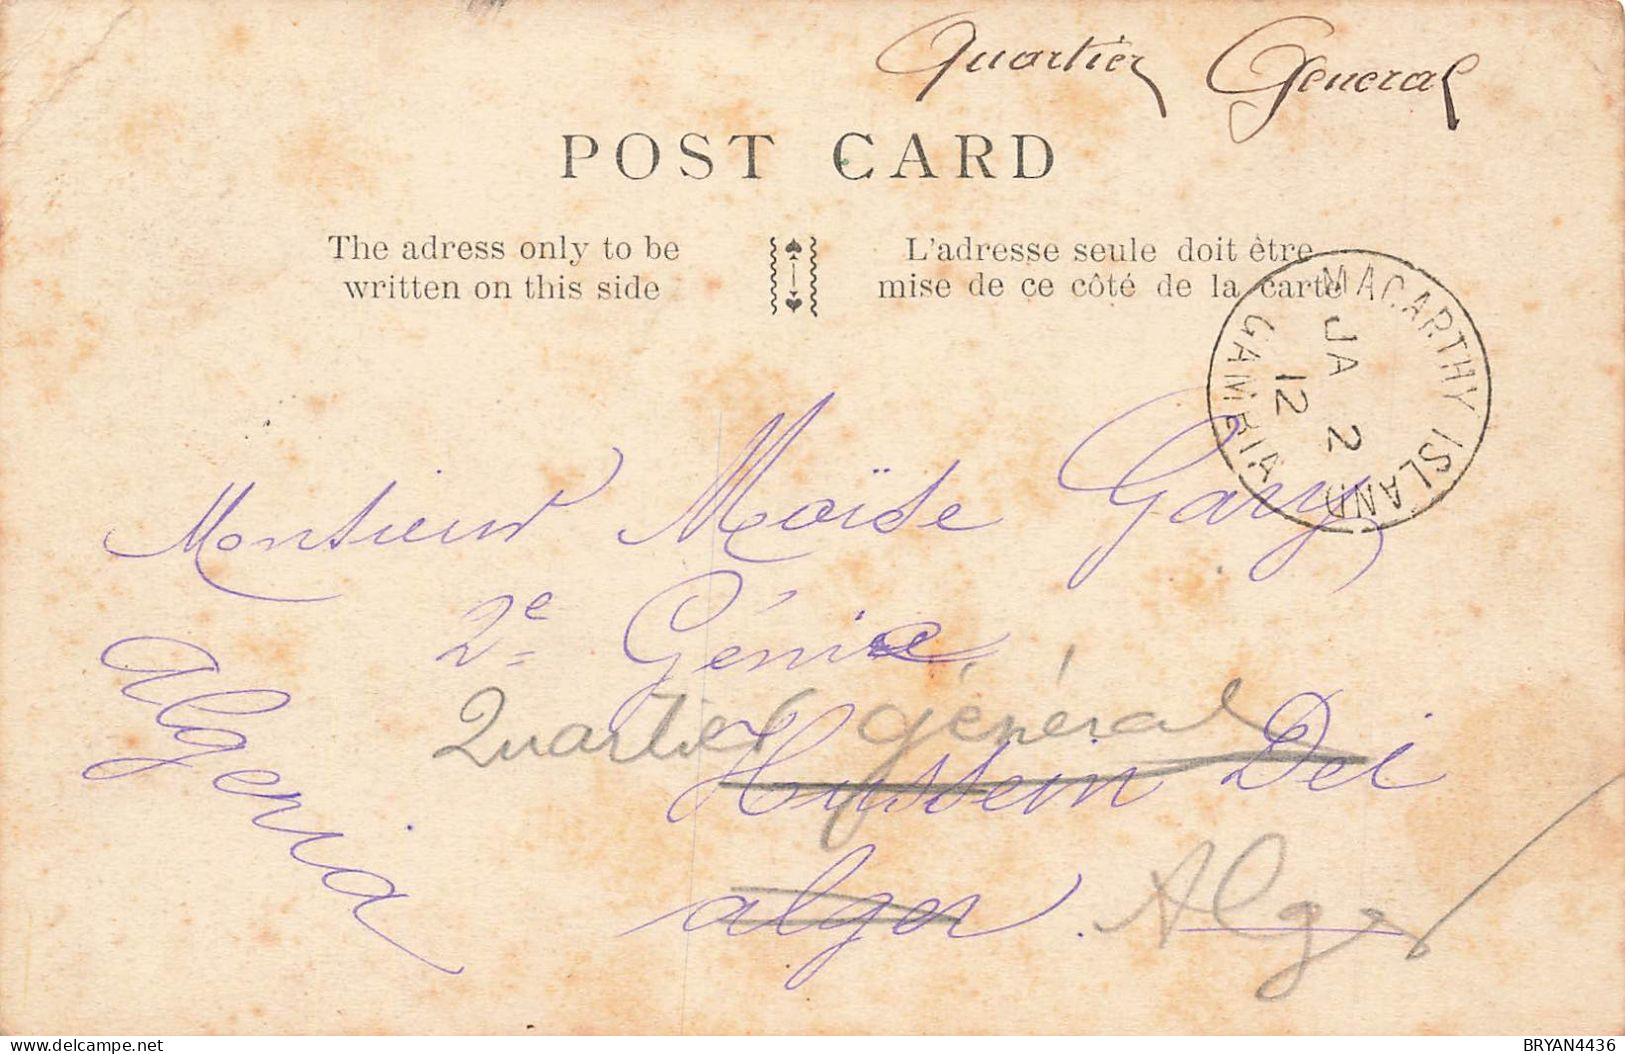 Quartier General
POST CARD
The adress only to be
written on this side
L'adresse seule doit être
mise de ce côté de la carte
MACARTHY ISLAND
JA 2
12
GAMBIA
Monsieur Moïse Gary
2e Génie
Quartier général
Hussein Dei
alger. Alger
Algeria
delcampe.net
BRYAN4436